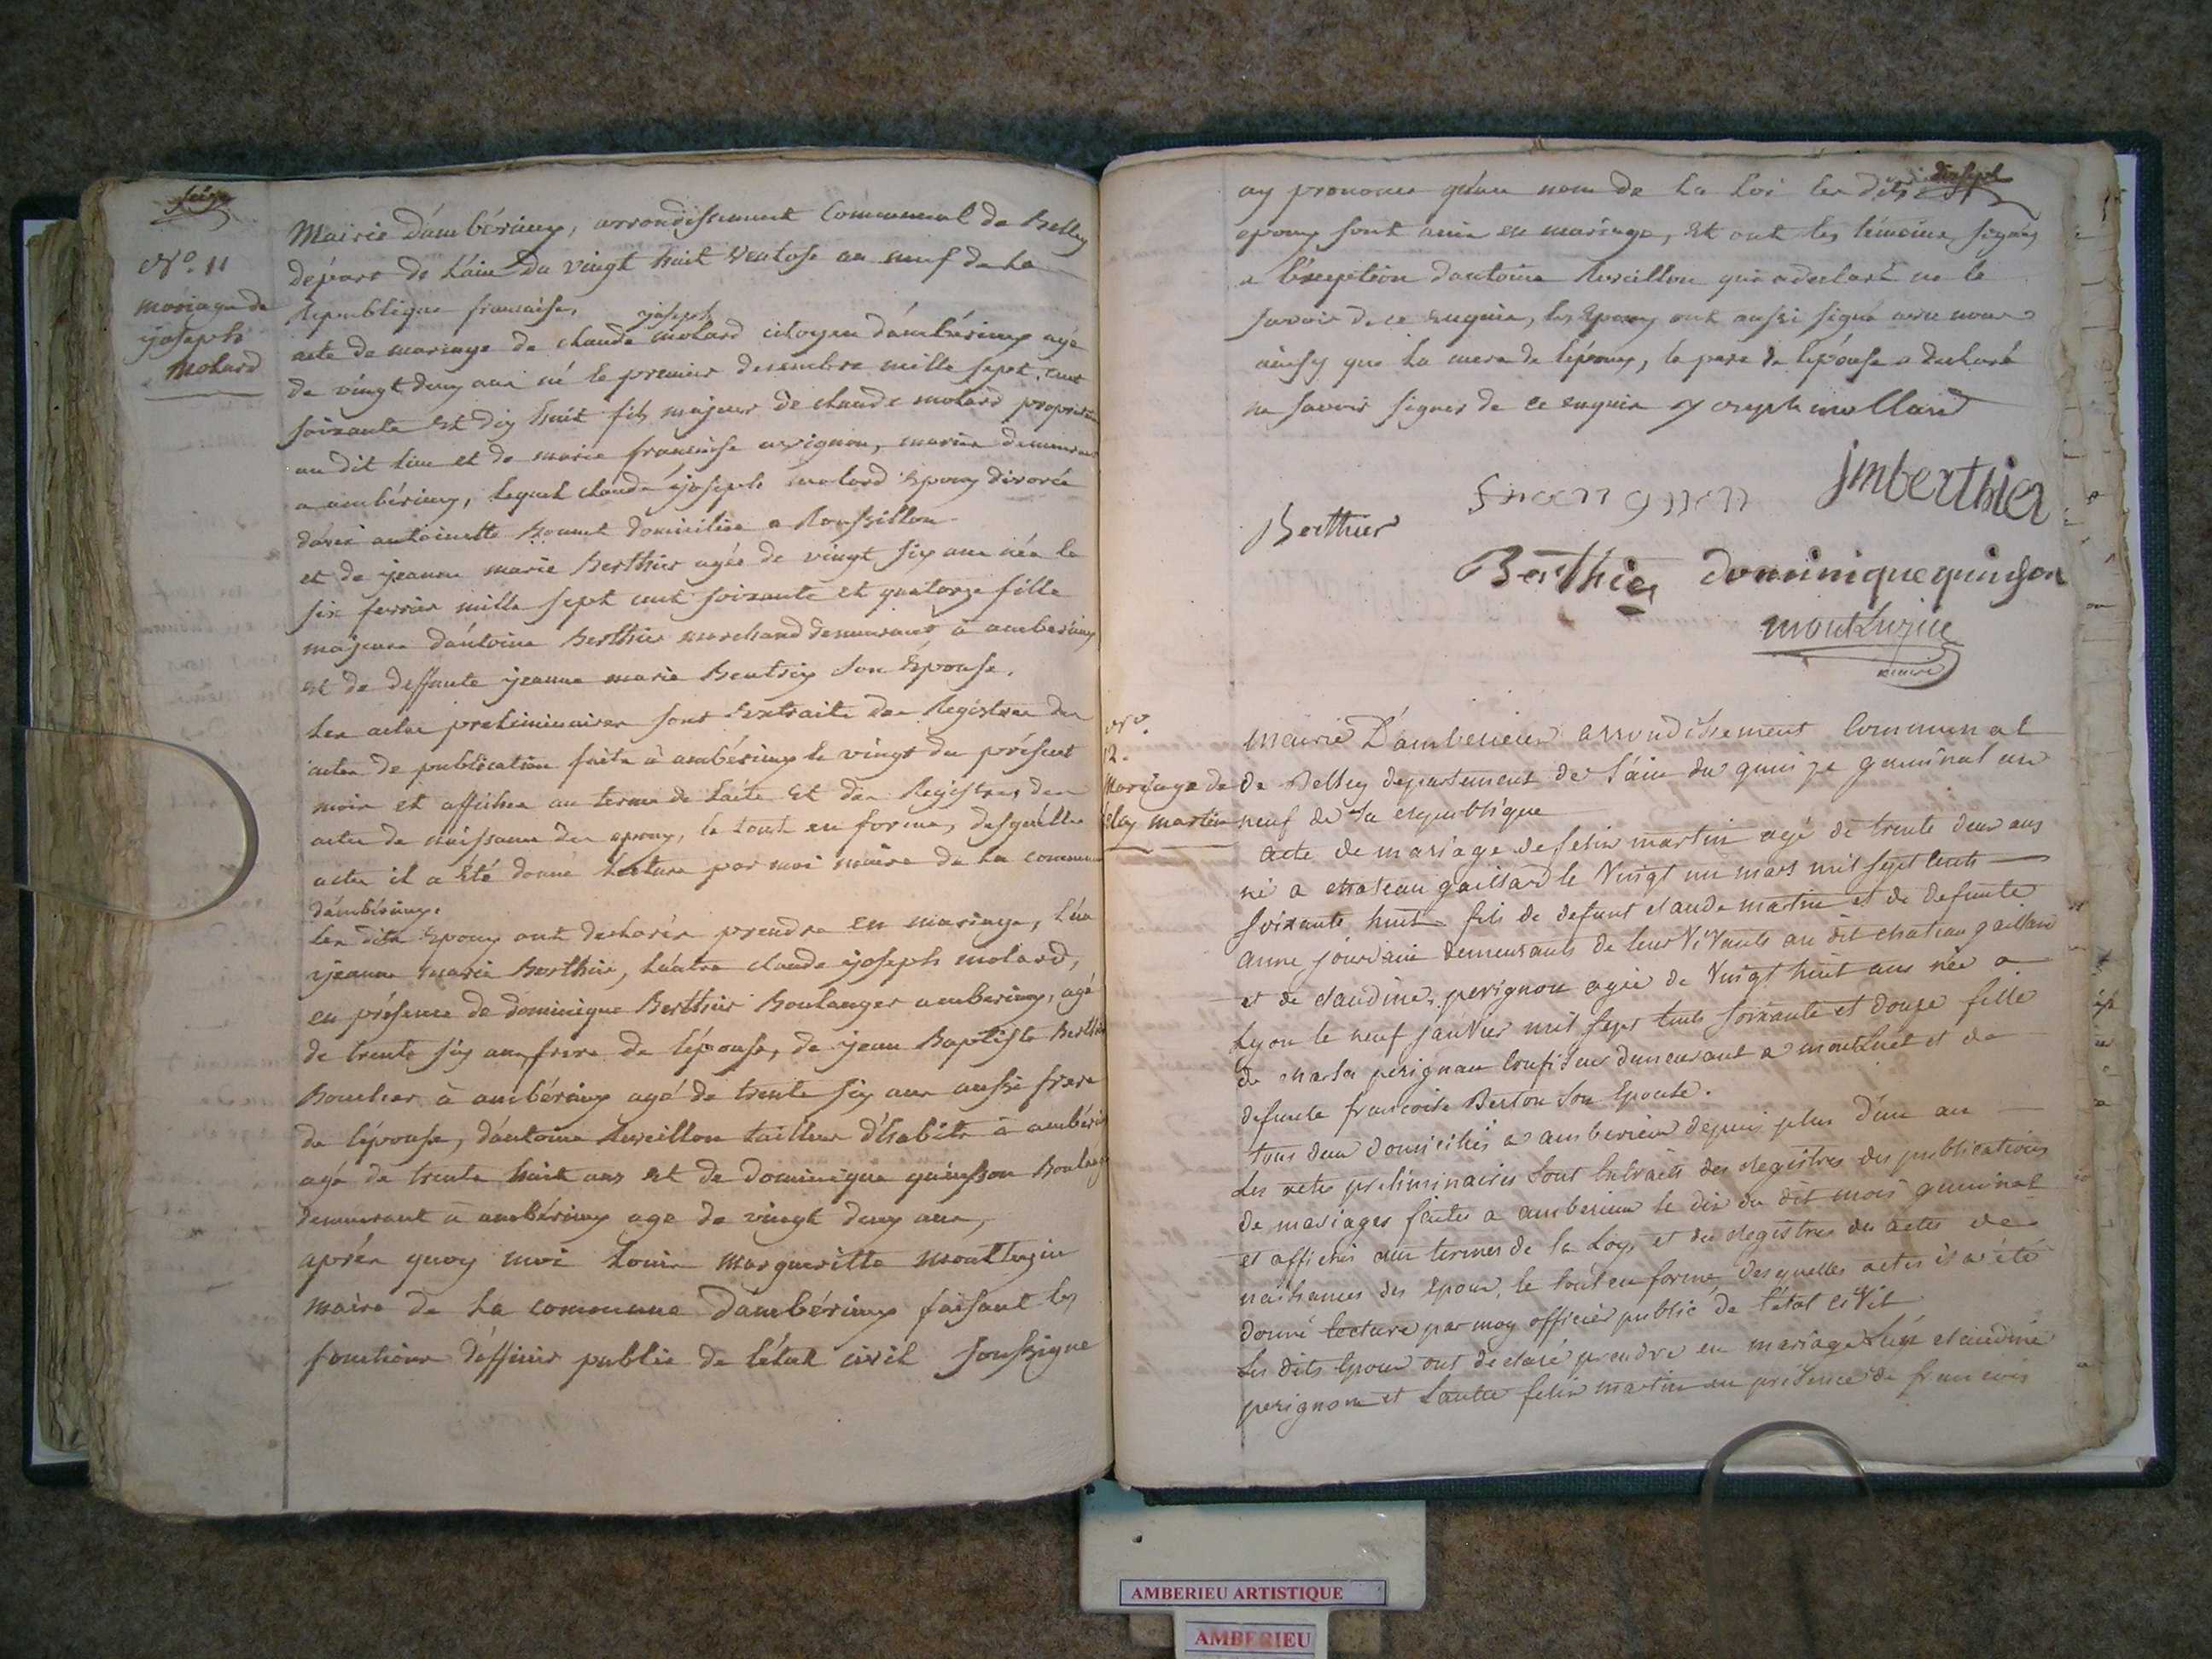 seize
N°. 11
mariage de
joseph
Molard
Mairie d'ambérieux, arrondissement Communal de Belley
départ de L'ain Du vingt huit Ventose an neuf de La
Republique francaise,
joseph
acte de mariage de claude molard citoyen d'ambérieux agé
de vingt deux ans né le premier decembre mille sept cent
soixante et dix huit fils majeur de claude molard propriétaire
au dit lieu et de marie francoise avignon, mariés demeurant
a ambérieux, lequel claude joseph molard Epoux divorcé
antoinette Bonnet domiciliée a Roussillon
et de jeanne marie Berthier agée de vingt six ans née le
six fevrier mille sept cent soixante et quatorze fille
majeure d'antoine Berthier marchand demeurant à amberieux
et de deffunte jeanne marie son Epouse.
Les actes preliminaires sont Extraits des Registres des
actes de publication faits à ambérieux le vingt du présent
mois et affichés au terme de Et des Registres des
actes de naissance des epoux, le tout en forme, desquelles
actes il a Eté donné Lecture par moi maire de La commune
d'ambérieux.
Les dits Epoux ont declarés prendre en mariage, L'un
jeanne marie Berthier, L'autre claude joseph molard,
en présence de dominique Berthier Boulanger amberieux, agé
de trente six ans frere de l'épouse, de jean Baptiste Berthier
Boucher à ambérieux agé de trente six ans aussi frere
de l'épouse, d'antoine tailleur d'habits à ambérieux
agé de trente huit ans et de dominique quinson Boulanger
demeurant à ambérieux age de vingt deux ans,
après quoy moi Louis margueritte montluzin
maire de La commune d'ambérieux faisant les
fonctions d'officier public de l'état civil soussigné
dixsept
ay prononcé qu'au nom de La Loi les dits
epoux sont unis en mariage, Et ont les témoins signés
a l'exeption d'antoine qui a declaré ne le
savoir de ce enquis, les Epoux ont aussi signé avec nous
ainsy que la mere de l'époux, le pere de l'épouse a declaré
ne savoir signer de ce enquis joseph mollard
jmberthier
Berthier
Berthier dominique quinson
montluzin
maire
N°.
12.
Mariage de
martin
mairie D'amberieux arrondissement Communal
de Belley departement de l'ain du quinze germinal an
neuf de la republique
acte de mariage de felix martin agé de trente deux ans
né a chateau gaillard le Vingt un mars mil sept cents
soixante huit fils de defunt claude martin et de defunte
anne jourdain demeurants de leur Vivants au dit chateau gaillard
et de claudine perignon agée de Vingt huit ans née a
Lyon le neuf janVier mil sept cents soixante et douze fille
de charles perignon Confiseur demeurant a montluel et de
defunte francoise Berton son Epouse.
tous deux domiciliés a amberieux depuis plus d'un an
Les actes preliminaires sont Extraits des Registres des publications
de mariages faites a amberieux le dix du dit mois germinal
et affichés aux termes de la Loy, et des Registres des actes de
naissances des Epoux, le tout en forme, desquelles actes il a été
donné lecture par moy officier public de l'état ciVil
Les dits Epoux ont declaré prendre en mariage L'un claudine
perignon et L'autre felix martin en présence de francois
AMBERIEU ARTISTIQUE
AMBERIEU